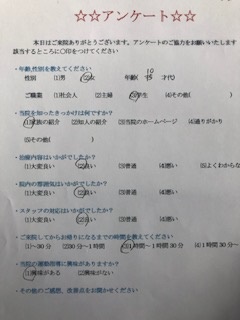 ☆☆アンケート☆☆
本日はご来院ありがとうございます。アンケートのご協力をお願いいたします
該当するところに○印をつけてください
・年齢、性別を教えてください
性別 (1)男 (2)女 年齢( 10 才代)
ご職業 (1)社会人 (2)主婦 (3)学生 (4)その他( )
・当院を知ったきっかけは何ですか？
(1)家族の紹介 (2)知人の紹介 (3)当院のホームページ (4)通りがかり
(5)その他( )
・治療内容はいかがでしたか？
(1)大変良い (2)良い (3)普通 (4)悪い (5)よくわからな
・院内の雰囲気はいかがでしたか？
(1)大変良い (2)良い (3)普通 (4)悪い
・スタッフの対応はいかがでしたか？
(1)大変良い (2)良い (3)普通 (4)悪い
・ご来院してからお帰りになるまでの時間を教えてください
(1)～30分 (2)30分～1時間 (3)1時間～1時間30分 (4)1時間30分～
・当院の運動指導に興味がありますか？
(1)興味がある (2)興味がない
・その他のご感想、改善点をお聞かせください